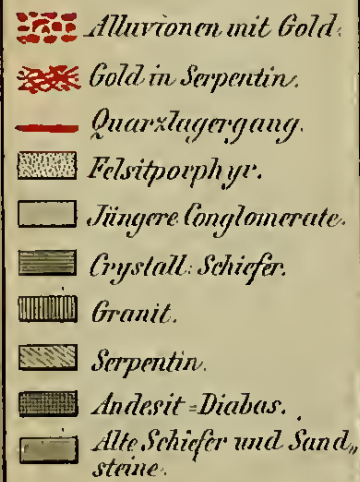 Alluvionen mit Gold.
Gold in Serpentin.
Quarzlagergang.
Felsitporphyr.
Jüngere Conglomerate.
Crystall: Schiefer.
Granit.
Serpentin.
Andesit=Diabas.
Alte Schiefer und Sand„
steine.